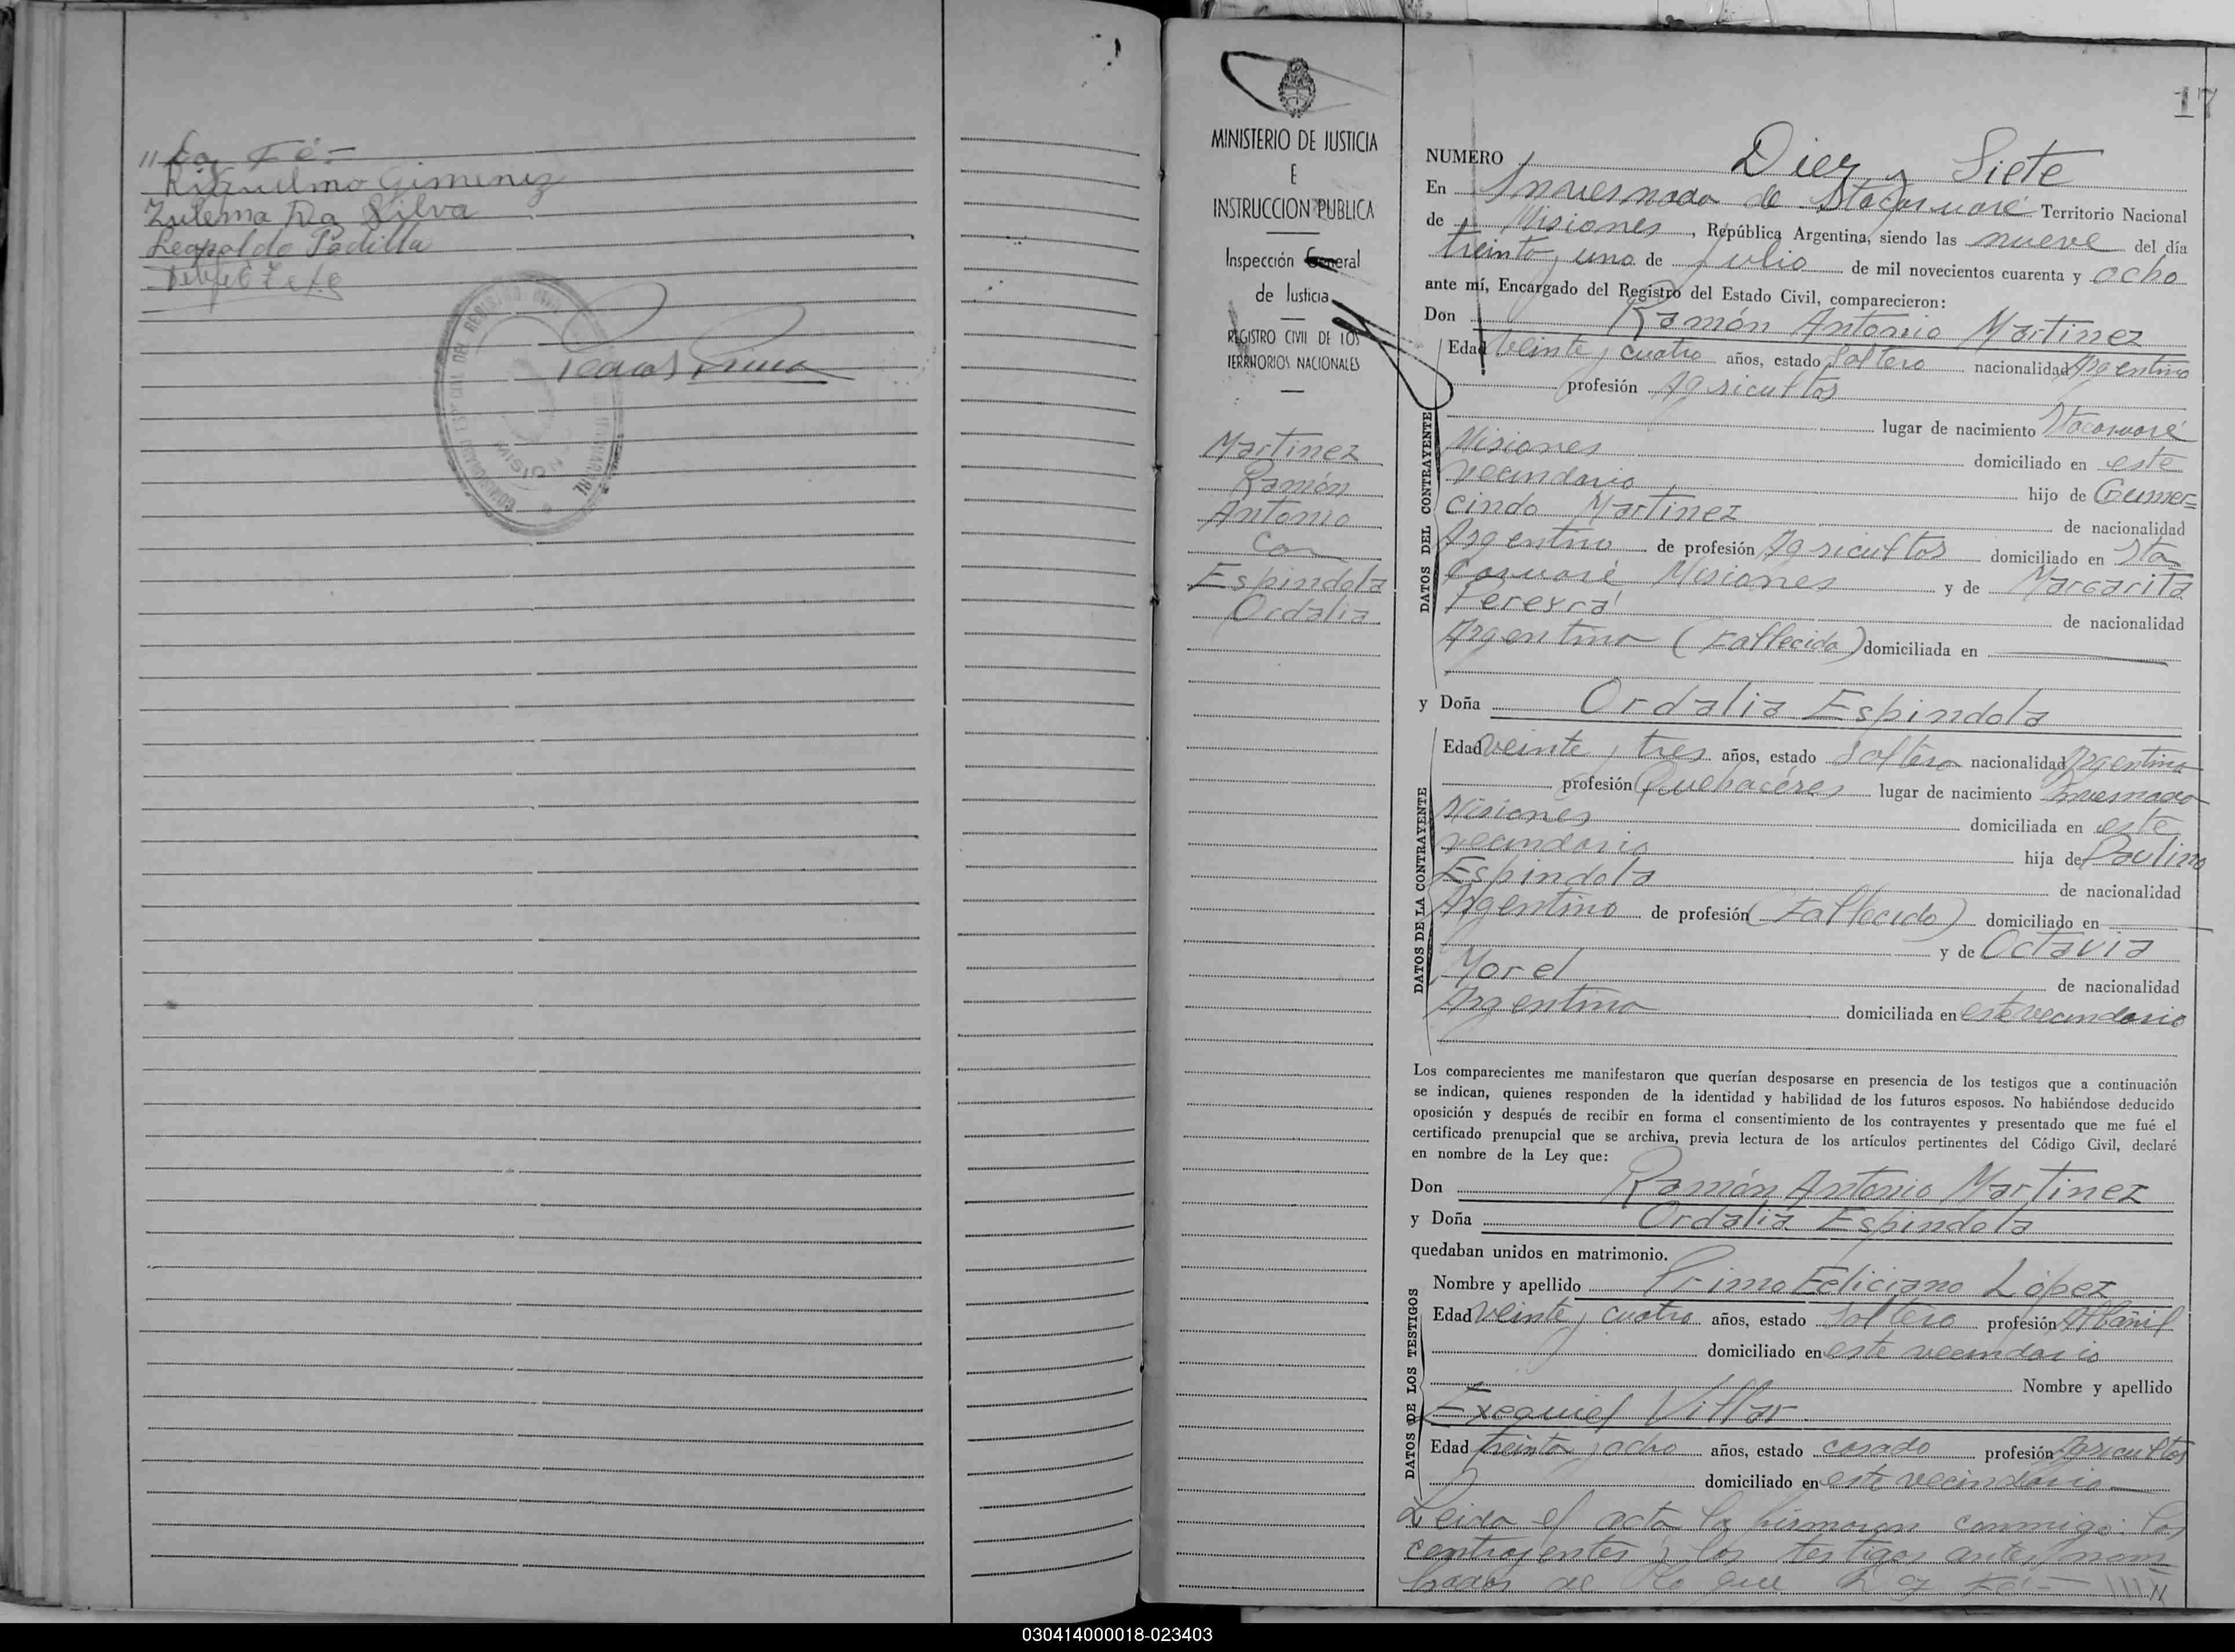 Doy Fé.-
Riguelmo Gimenez
Zulema Da Silva
Leopoldo Padilla
17
MINISTERIO DE JUSTICIA
E
INSTRUCCION PUBLICA
Inspección General
de Justicia
REGISTRO CIVIL DE LOS
TERRITORIOS NACIONALES
Martinez
Ramón
Antonio
Con
Espindola
Ordalia
NUMERO Diez y Siete
En Invernada de Itacaruaré Territorio Nacional
de Misiones, República Argentina, siendo las nueve del día
treinta y uno de Julio de mil novecientos cuarenta y ocho
ante mí, Encargado del Registro del Estado Civil, comparecieron:
Don Ramón Antonio Martinez
DATOS DEL CONTRAYENTE
Edad veinte y cuatro años, estado Soltero nacionalidad Argentino
profesión Agricultor
lugar de nacimiento Itacaruaré
Misiones domiciliado en este
vecindario hijo de Gumer=
cindo Martinez de nacionalidad
Argentino de profesión Agricultor domiciliado en Ita
caruaré Misiones y de Margarita
Pereyra de nacionalidad
Argentina (Fallecida) domiciliada en
y Doña Ordalia Espindola
DATOS DE LA CONTRAYENTE
Edad veinte y tres años, estado Soltera nacionalidad Argentina
profesión Quehacéres lugar de nacimiento Invernada
Misiones domiciliada en este
vecindario hija de Paulino
Espindola de nacionalidad
Argentino de profesión (Fallecido) domiciliado en
y de Octavia
Morel de nacionalidad
Argentina domiciliada en este vecindario
Los comparecientes me manifestaron que querían desposarse en presencia de los testigos que a continuación
se indican, quienes responden de la identidad y habilidad de los futuros esposos. No habiéndose deducido
oposición y después de recibir en forma el consentimiento de los contrayentes y presentado que me fué el
certificado prenupcial que se archiva, previa lectura de los artículos pertinentes del Código Civil, declaré
en nombre de la Ley que:
Don Ramón Antonio Martinez
y Doña Ordalia Espindola
quedaban unidos en matrimonio.
DATOS DE LOS TESTIGOS
Nombre y apellido Primo Feliciano López
Edad veinte y cuatro años, estado Soltero profesión Albañil
domiciliado en este vecindario
Nombre y apellido
Exequiel Villar
Edad treinta y ocho años, estado casado profesión Agricultor
domiciliado en este vecindario
Leida el acta la firmaron conmigo: los
contrayentes y los testigos antes nom
brados de lo que Doy Fé.- ////
030414000018-023403